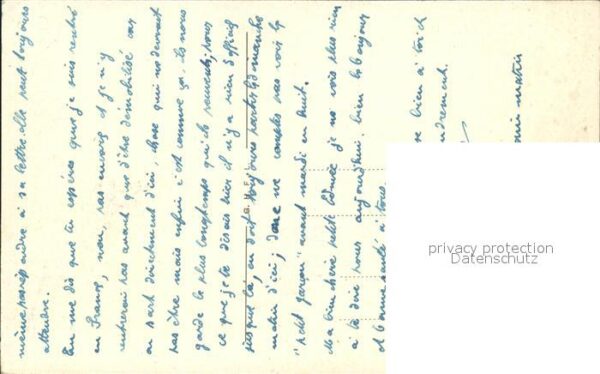 même pas répondre à sa lettre elle peut toujours
attendre.
Tu me dis que tu espères que je suis rentré
en France, non, pas encore et je n'y
rentrerai pas avant que d'être démobilisé car
on part directement d'ici, chose qui ne devrait
pas être mais enfin c'est comme ça, ils nous
garde le plus longtemps qu'ils peuvent; pour
ce que je te disais hier il n'y a rien d'officiel
jusque là, on doit toujours partir le dimanche
matin d'ici; donc ne comptes pas voir le
"petit garçon" avant mardi en huit.
Ma bien chère petite je ne vois plus rien
à te dire pour aujourd'hui, bien le bonjour
et bonne santé à tous.
bien à toi ch
drement.
matin
privacy protection
Datenschutz